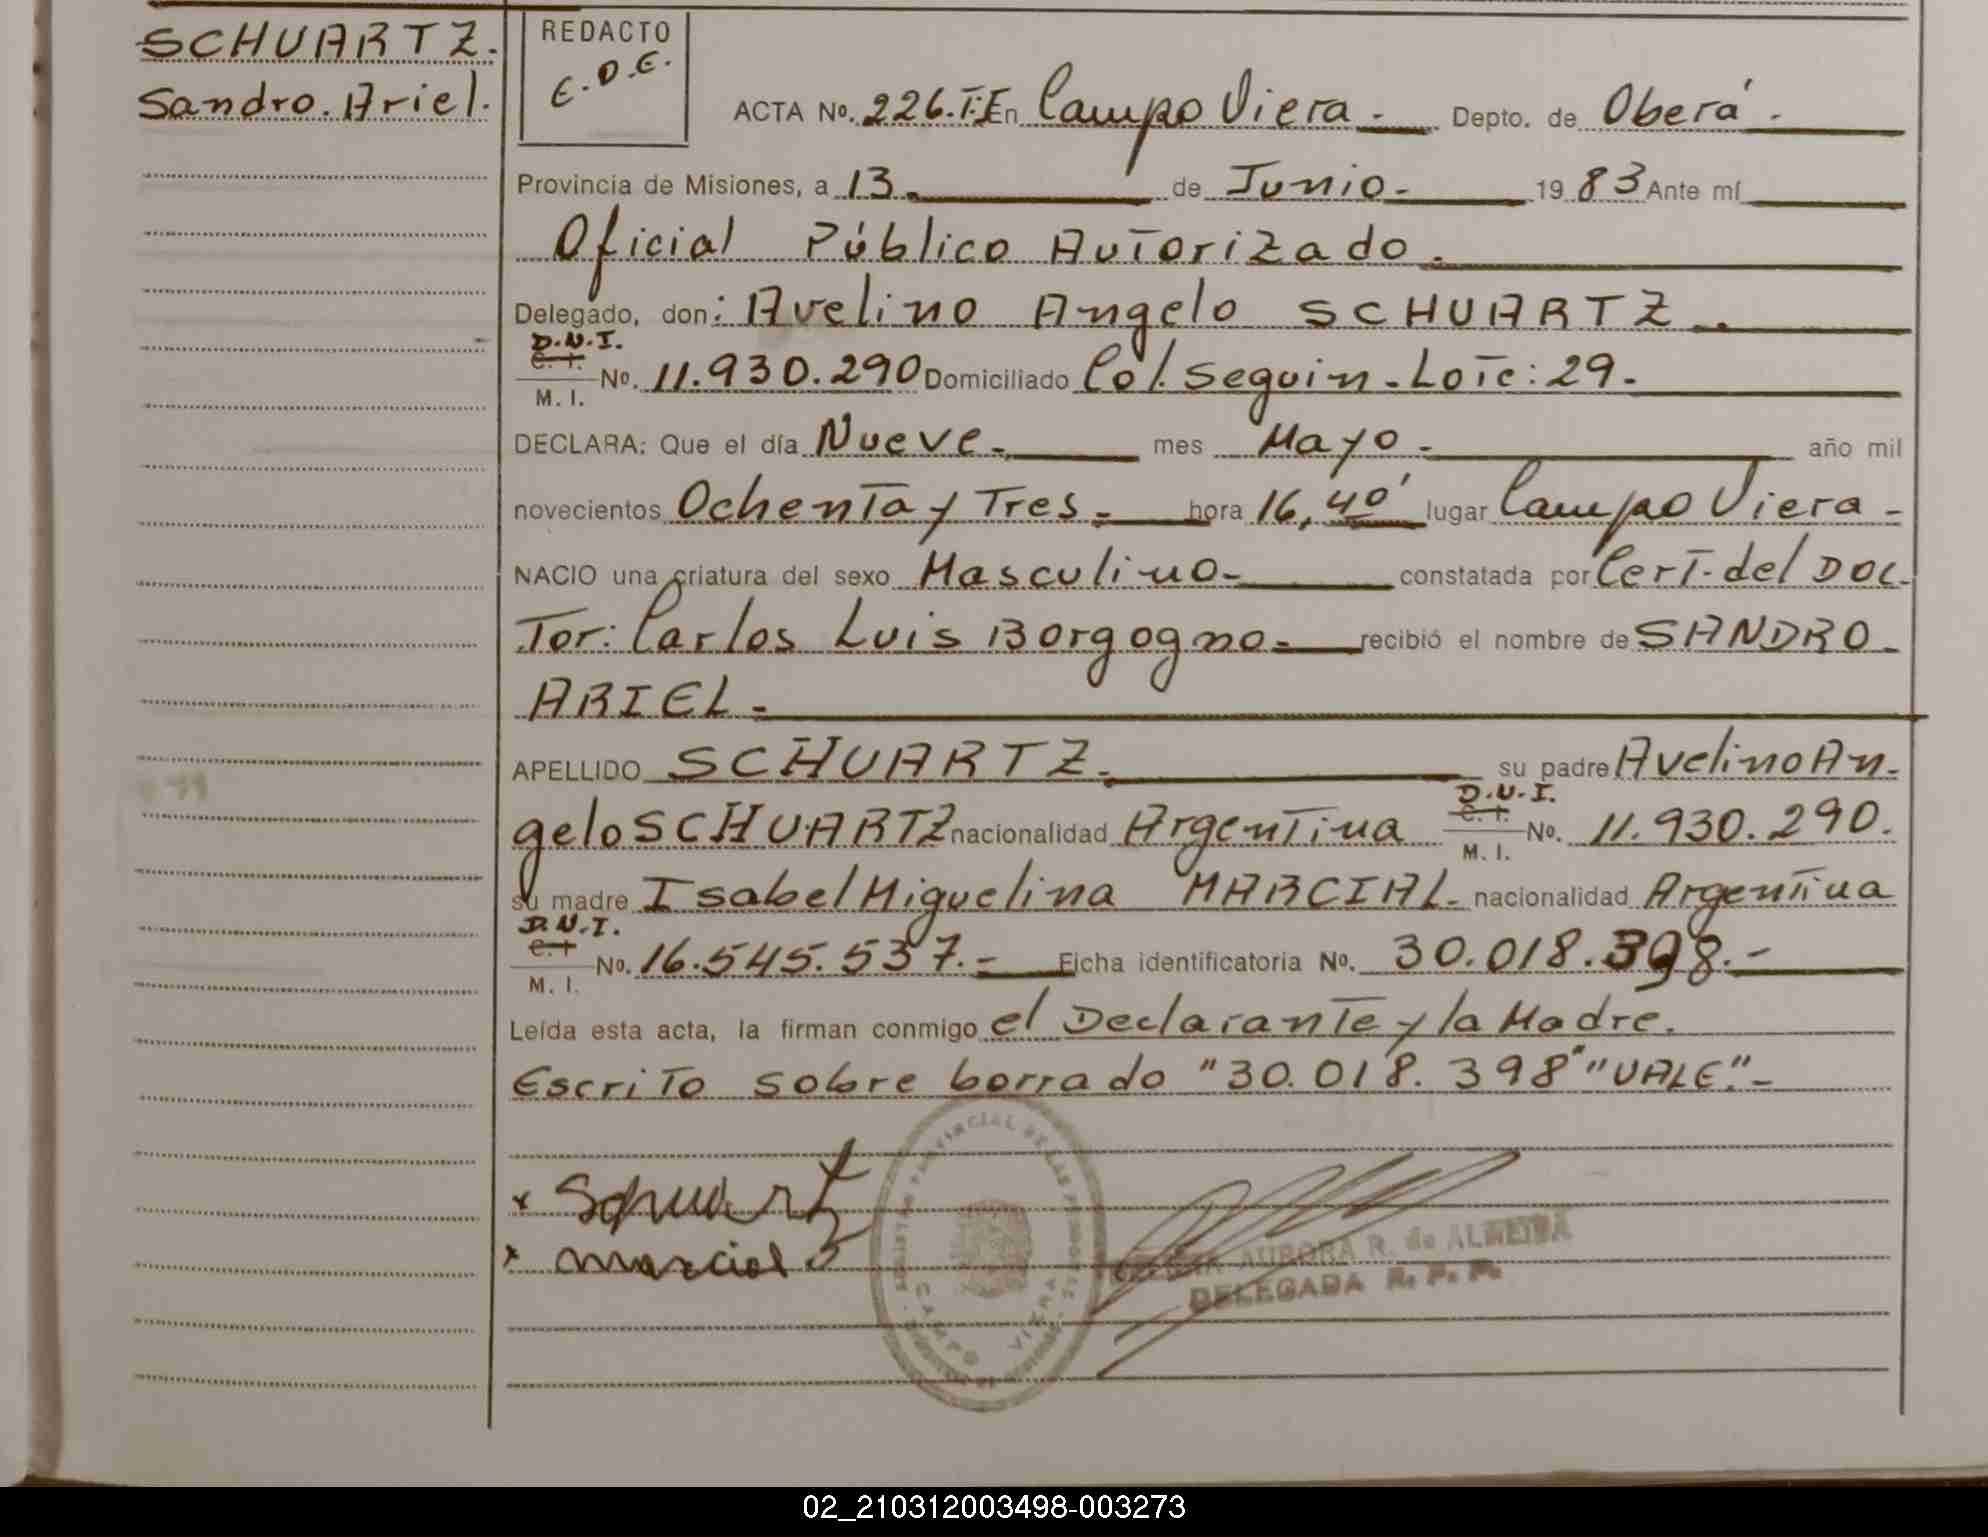 SCHUARTZ.
Sandro. Ariel.
REDACTO
E.D.E.
ACTA No. 226.T:I En Campo Viera.- Depto. de Oberá.
Provincia de Misiones, a 13. de Junio.- 1983 Ante mí
Oficial Público Autorizado.
Delegado, don: Avelino Angelo SCHUARTZ.
D.N.I.
C. I.
M. I. No. 11.930.290 Domiciliado Col. Seguin - Lote: 29.
DECLARA: Que el día Nueve.- mes Mayo.- año mil
novecientos Ochenta y Tres.- hora 16,40' lugar Campo Viera -
NACIO una criatura del sexo Masculino- constatada por Cert. del DOC-
Tor: Carlos Luis Borgogno.- recibió el nombre de SANDRO-
ARIEL.-
APELLIDO SCHUARTZ.- su padre Avelino An-
gelo SCHUARTZ nacionalidad Argentina D.N.I. C. I. M. I. No. 11.930.290.
su madre Isabel Miguelina MARCIAL- nacionalidad Argentina
D.N.I.
C. I.
M. I. No. 16.545.537.- Ficha identificatoria No. 30.018.398.-
Leída esta acta, la firman conmigo el Declarante y la Madre.
Escrito sobre borrado "30.018.398" "VALE".-
x Schuartz
x marcial
CAMPO VIERA
AURORA R. de ALMEIDA
DELEGADA R. P. P.
02_210312003498-003273